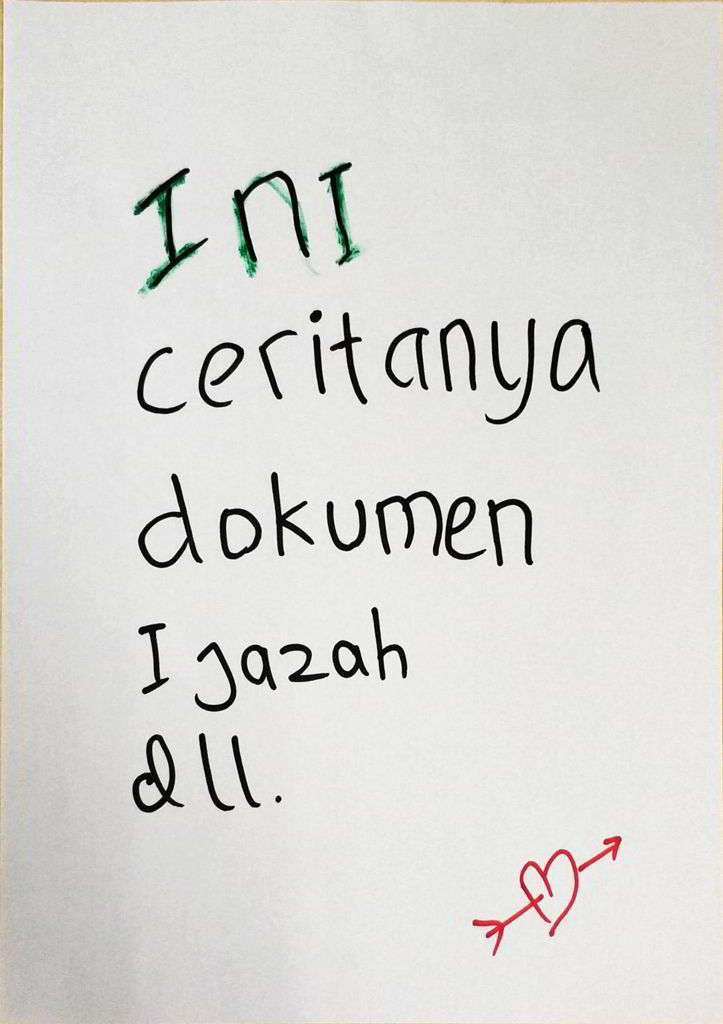 InI
ceritanya
dokumen
Ijazah
dll.